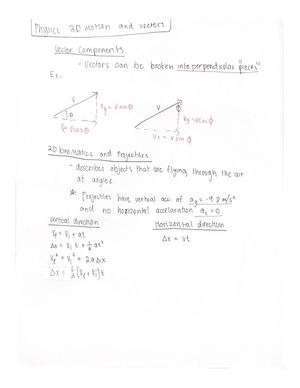 Physics 2D Motion and vectors
Vector Components
- Vectors can be broken into perpendicular "pieces"
Ex.
V
Vy = v sin θ
θ
Vx = v cos θ
V
ϕ
Vy = v cos ϕ
Vx = v sin ϕ
2D kinematics and Projectiles
- describes objects that are flying through the air
at angles.
* Projectiles have vertical acc of ay = -9.8 m/s²
and no horizontal acceleration ax = 0
Vertical direction
Vf = Vi + at
Δx = Vi t + ½ at²
Vf² = Vi² + 2aΔx
Δx = ½ (Vf + Vi) t
Horizontal direction
Δx = vt